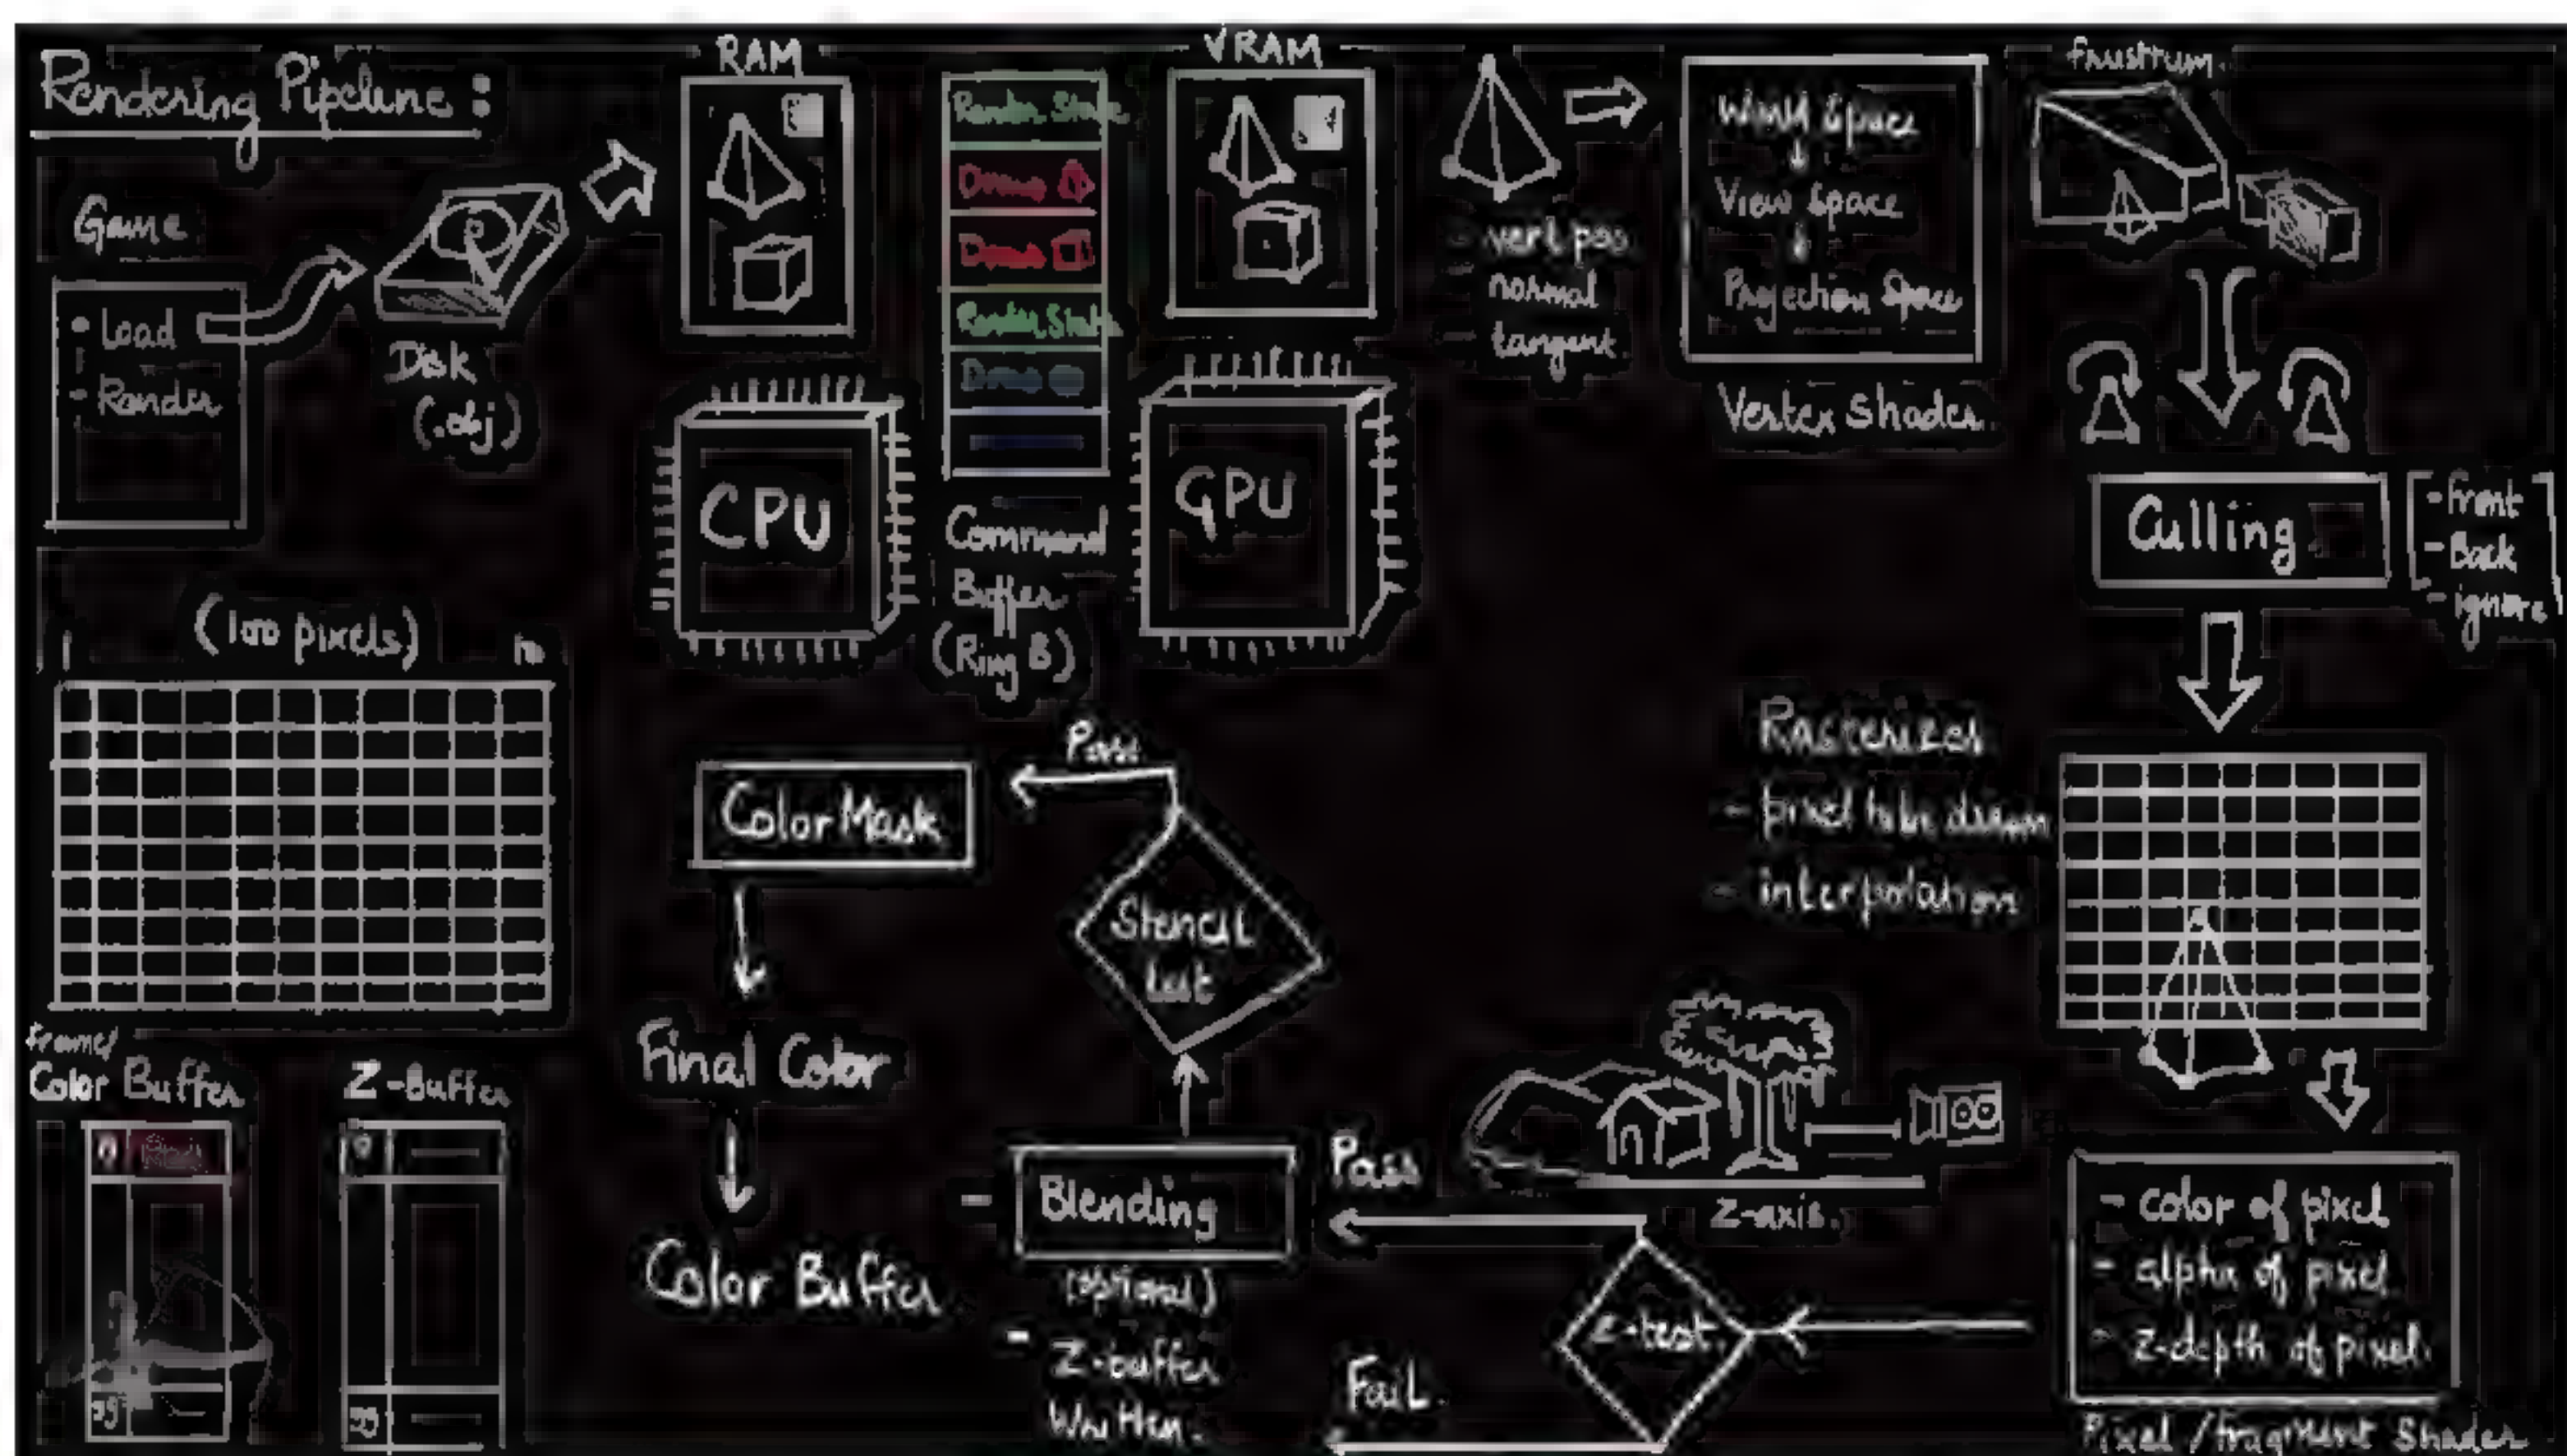 Rendering Pipeline :
Game
• Load
- Render
Disk
(.obj)
RAM
CPU
Render State
Draw
Draw
Render State
Draw
Command
Buffer
(Ring B)
VRAM
GPU
- vert pos
normal
tangent
World Space
View Space
Projection Space
Vertex Shader
frusttum
Culling
- front
- Back
- ignore
Rasterizer
- pixel to be drawn
- interpolation
- color of pixel
- alpha of pixel
- z-depth of pixel
Pixel / fragment Shader
z-axis.
z-test
Pass
Fail
Blending
(optional)
- Z-buffer
Written.
Stencil
test
Pass
Color Mask
Final Color
Color Buffer
(100 pixels)
1
Frame/
Color Buffer
0
99
Z-Buffer
0
99